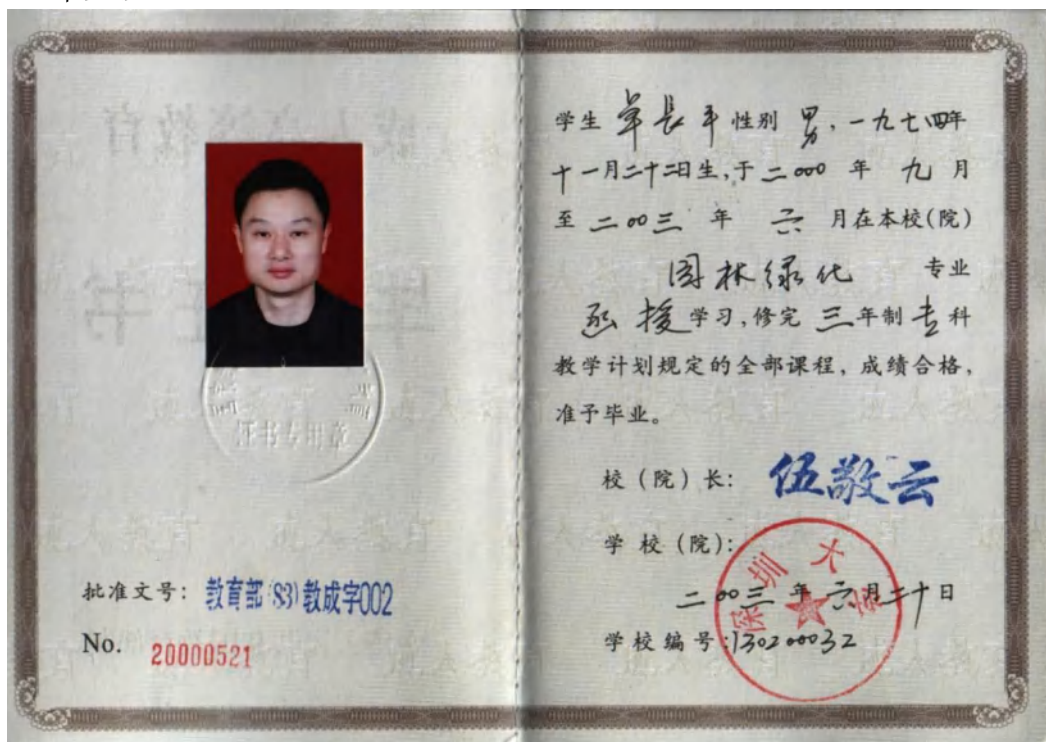 证书专用章
批准文号：教育部(83)教成字002
No. 20000521
学生 单长平 性别 男，一九七四年
十一月二十二日生，于二000 年 九 月
至 二00三 年 六 月在本校(院)
园林绿化 专业
函授学习，修完 三年制专科
教学计划规定的全部课程，成绩合格，
准予毕业。
校（院）长：伍敬云
学 校（院）：
深圳大学
二00三年六月二十日
学校编号：130200032